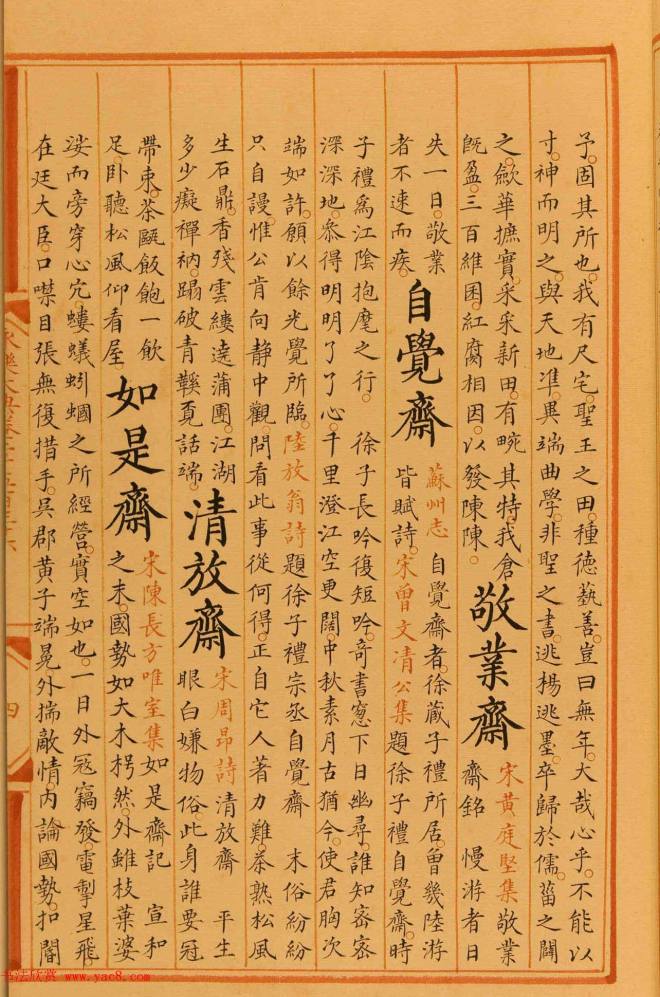 予。固其所也。我有尺宅。聖王之田。種德藝善。豈曰無年。大哉心乎。不能以
寸。神而明之。與天地準。異端曲學。非聖之書。逃楊逃墨。卒歸於儒。菑之闢
之。歛華摭實。采采新田。有畹其特。我倉
旣盈。三百維囷。紅腐相因。以發陳陳。
敬業齋
宋黃庭堅集敬業
齋銘 慢游者日
失一日。敬業
者不速而疾。
自覺齋
蘇州志 自覺齋者。徐蕆子禮所居。曾幾陸游
皆賦詩。宋曾文清公集題徐子禮自覺齋。時
子禮爲江陰抱麾之行。 徐子長吟復短吟。奇書窓下日幽尋。誰知密密
深深地。叅得明明了了心。千里澄江空更闊。中秋素月古猶今。使君胸次
端如許。願以餘光覺所臨。陸放翁詩題徐子禮宗丞自覺齋 末俗紛紛
只自謾。惟公肯向静中觀。問看此事從何得。正自它人著力難。茶熟松風
生石鼎。香殘雲縷遶蒲團。江湖
多少癡禪衲。蹋破青鞵覓話端。
清放齋
宋周昂詩清放齋 平生
眼白嫌物俗。此身誰要冠
帶束。茶甌飯飽一飲
足。卧聽松風仰看屋
如是齋
宋陳長方唯室集如是齋記 宣和
之末。國勢如大木枵然。外雖枝葉婆
娑而旁穿心穴。螻蟻蚓蟈之所經營。實空如也。一日外冦竊發。電掣星飛。
在廷大臣。口噤目張無復措手。吳郡黃子端晃外揣敵情。内論國勢。扣閽
四
书法欣赏 www.yac8.com